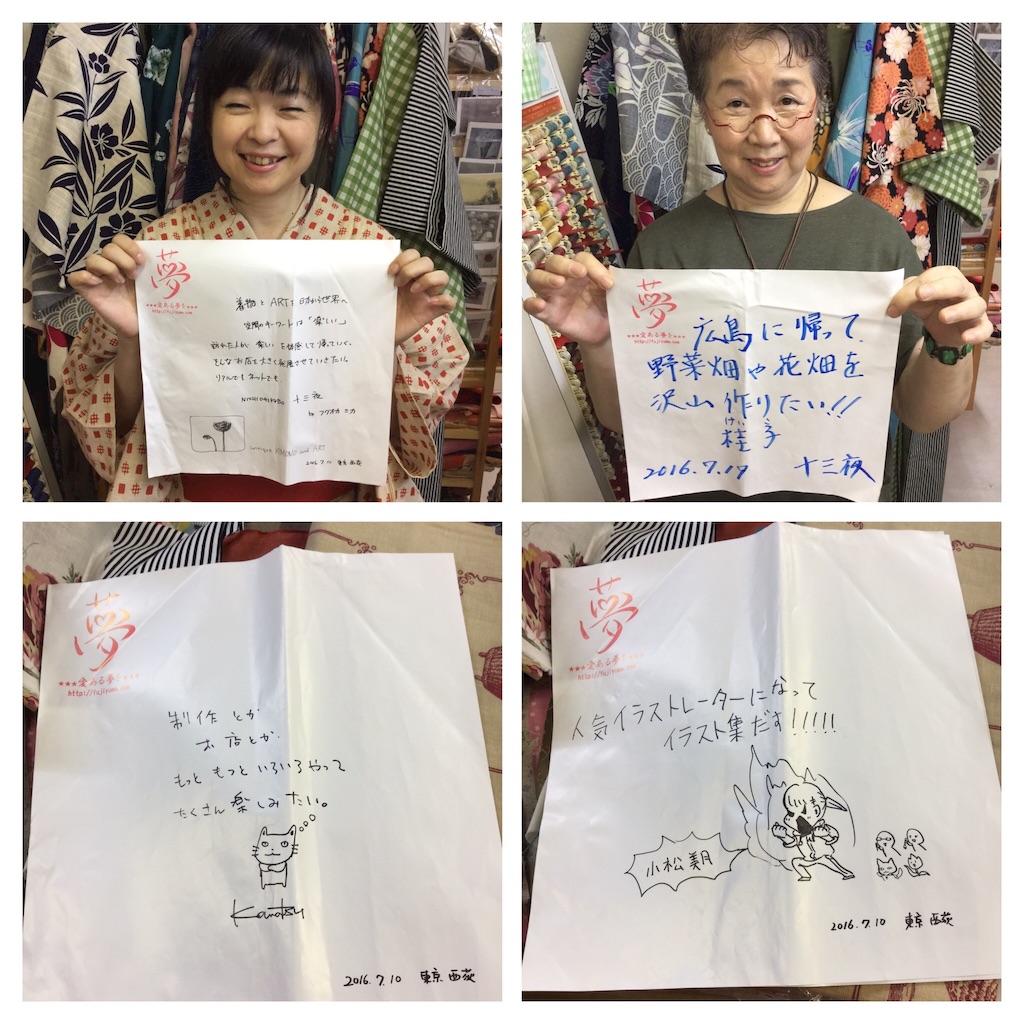 夢
★★★愛ある夢を★★★
http://fujiyume.com
着物とARTを日本から世界へ
空間のキーワードは「楽しい」
訪れた人が 楽しい を体感して帰っていく。
そんなお店を大きく発展させていきたい!!
リアルでも ネットでも
十三夜
by フクオカ ミカ
KIMONO and ART
2016.7.10 東京 西荻
夢
★★★愛ある夢を★★★
http://fujiyume.com
広島に帰って
野菜畑や花畑を
沢山作りたい!!
けい 子
桂
2016.7.17 十三夜
夢
★★★愛ある夢を★★★
http://fujiyume.com
制作とか
お店とか
もっと もっと いろいろ やって
たくさん 楽しみ たい。
2016.7.10 東京 西荻
夢
★★★愛ある夢を★★★
http://fujiyume.com
人気イラストレーターになって
イラスト集だす!!!!!
小松美月
2016.7.10 東京 西荻